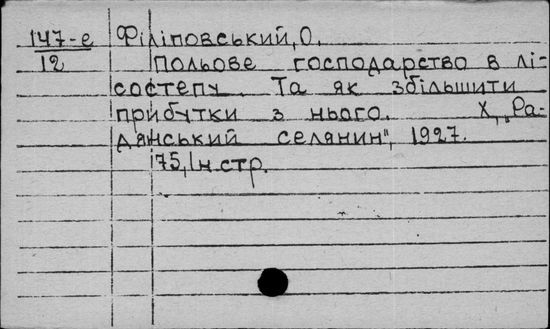 147-е Філіповський, О.
12 Польове господарство в лі-
состепу. Та як збільшити
прибутки з нього. Х, „Ра-
дянський селянин", 1927.
75, Ін стр.